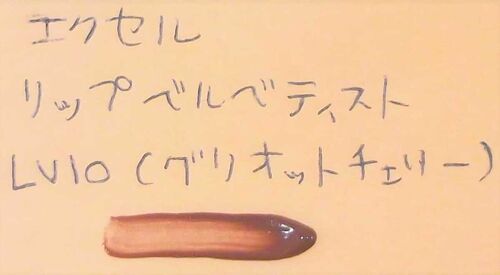 エクセル
リップベルベティスト
LV10(グリオットチェリー)